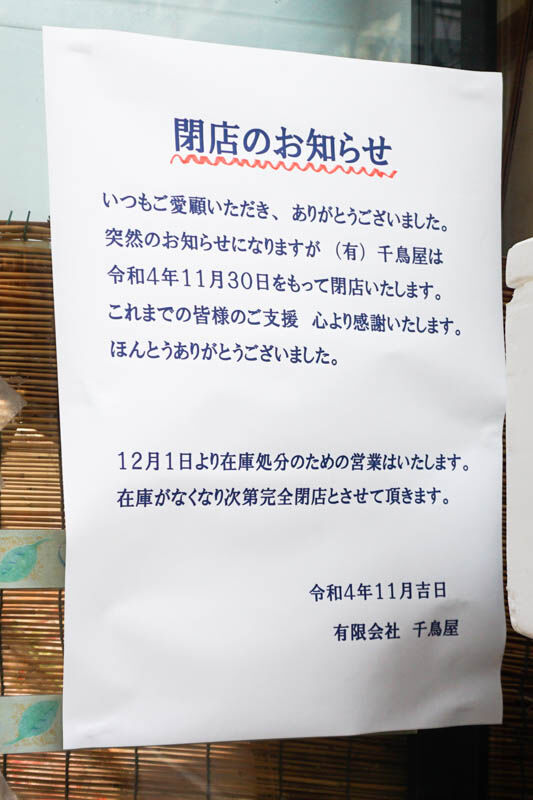 閉店のお知らせ
いつもご愛顧いただき、ありがとうございました。
突然のお知らせになりますが（有）千鳥屋は
令和4年11月30日をもって閉店いたします。
これまでの皆様のご支援 心より感謝いたします。
ほんとうありがとうございました。
12月1日より在庫処分のための営業はいたします。
在庫がなくなり次第完全閉店とさせて頂きます。
令和4年11月吉日
有限会社 千鳥屋